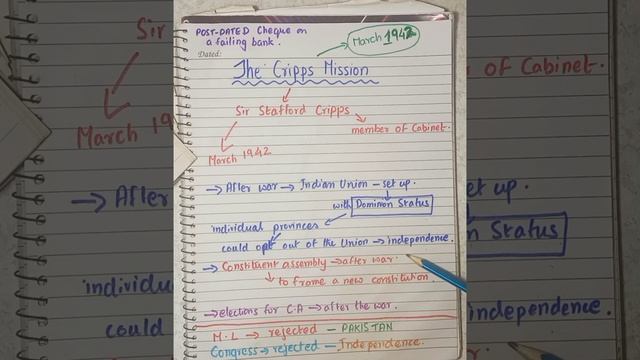 POST-DATED Cheque on
a failing bank.
March 1942
Dated:
The Cripps Mission
Sir Stafford Cripps
member of Cabinet.
March 1942
→ After war → Indian Union – set up.
with Dominion Status
individual provinces
could opt out of the Union → independence.
→ Constituent assembly → after war.
↳ to frame a new constitution
→ elections for C.A → after the war.
M.L → rejected – PAKISTAN
Congress → rejected – Independence.
Sir
March 19
→ After
individu
could
s of Cabinet.
et up.
n Status
independence.